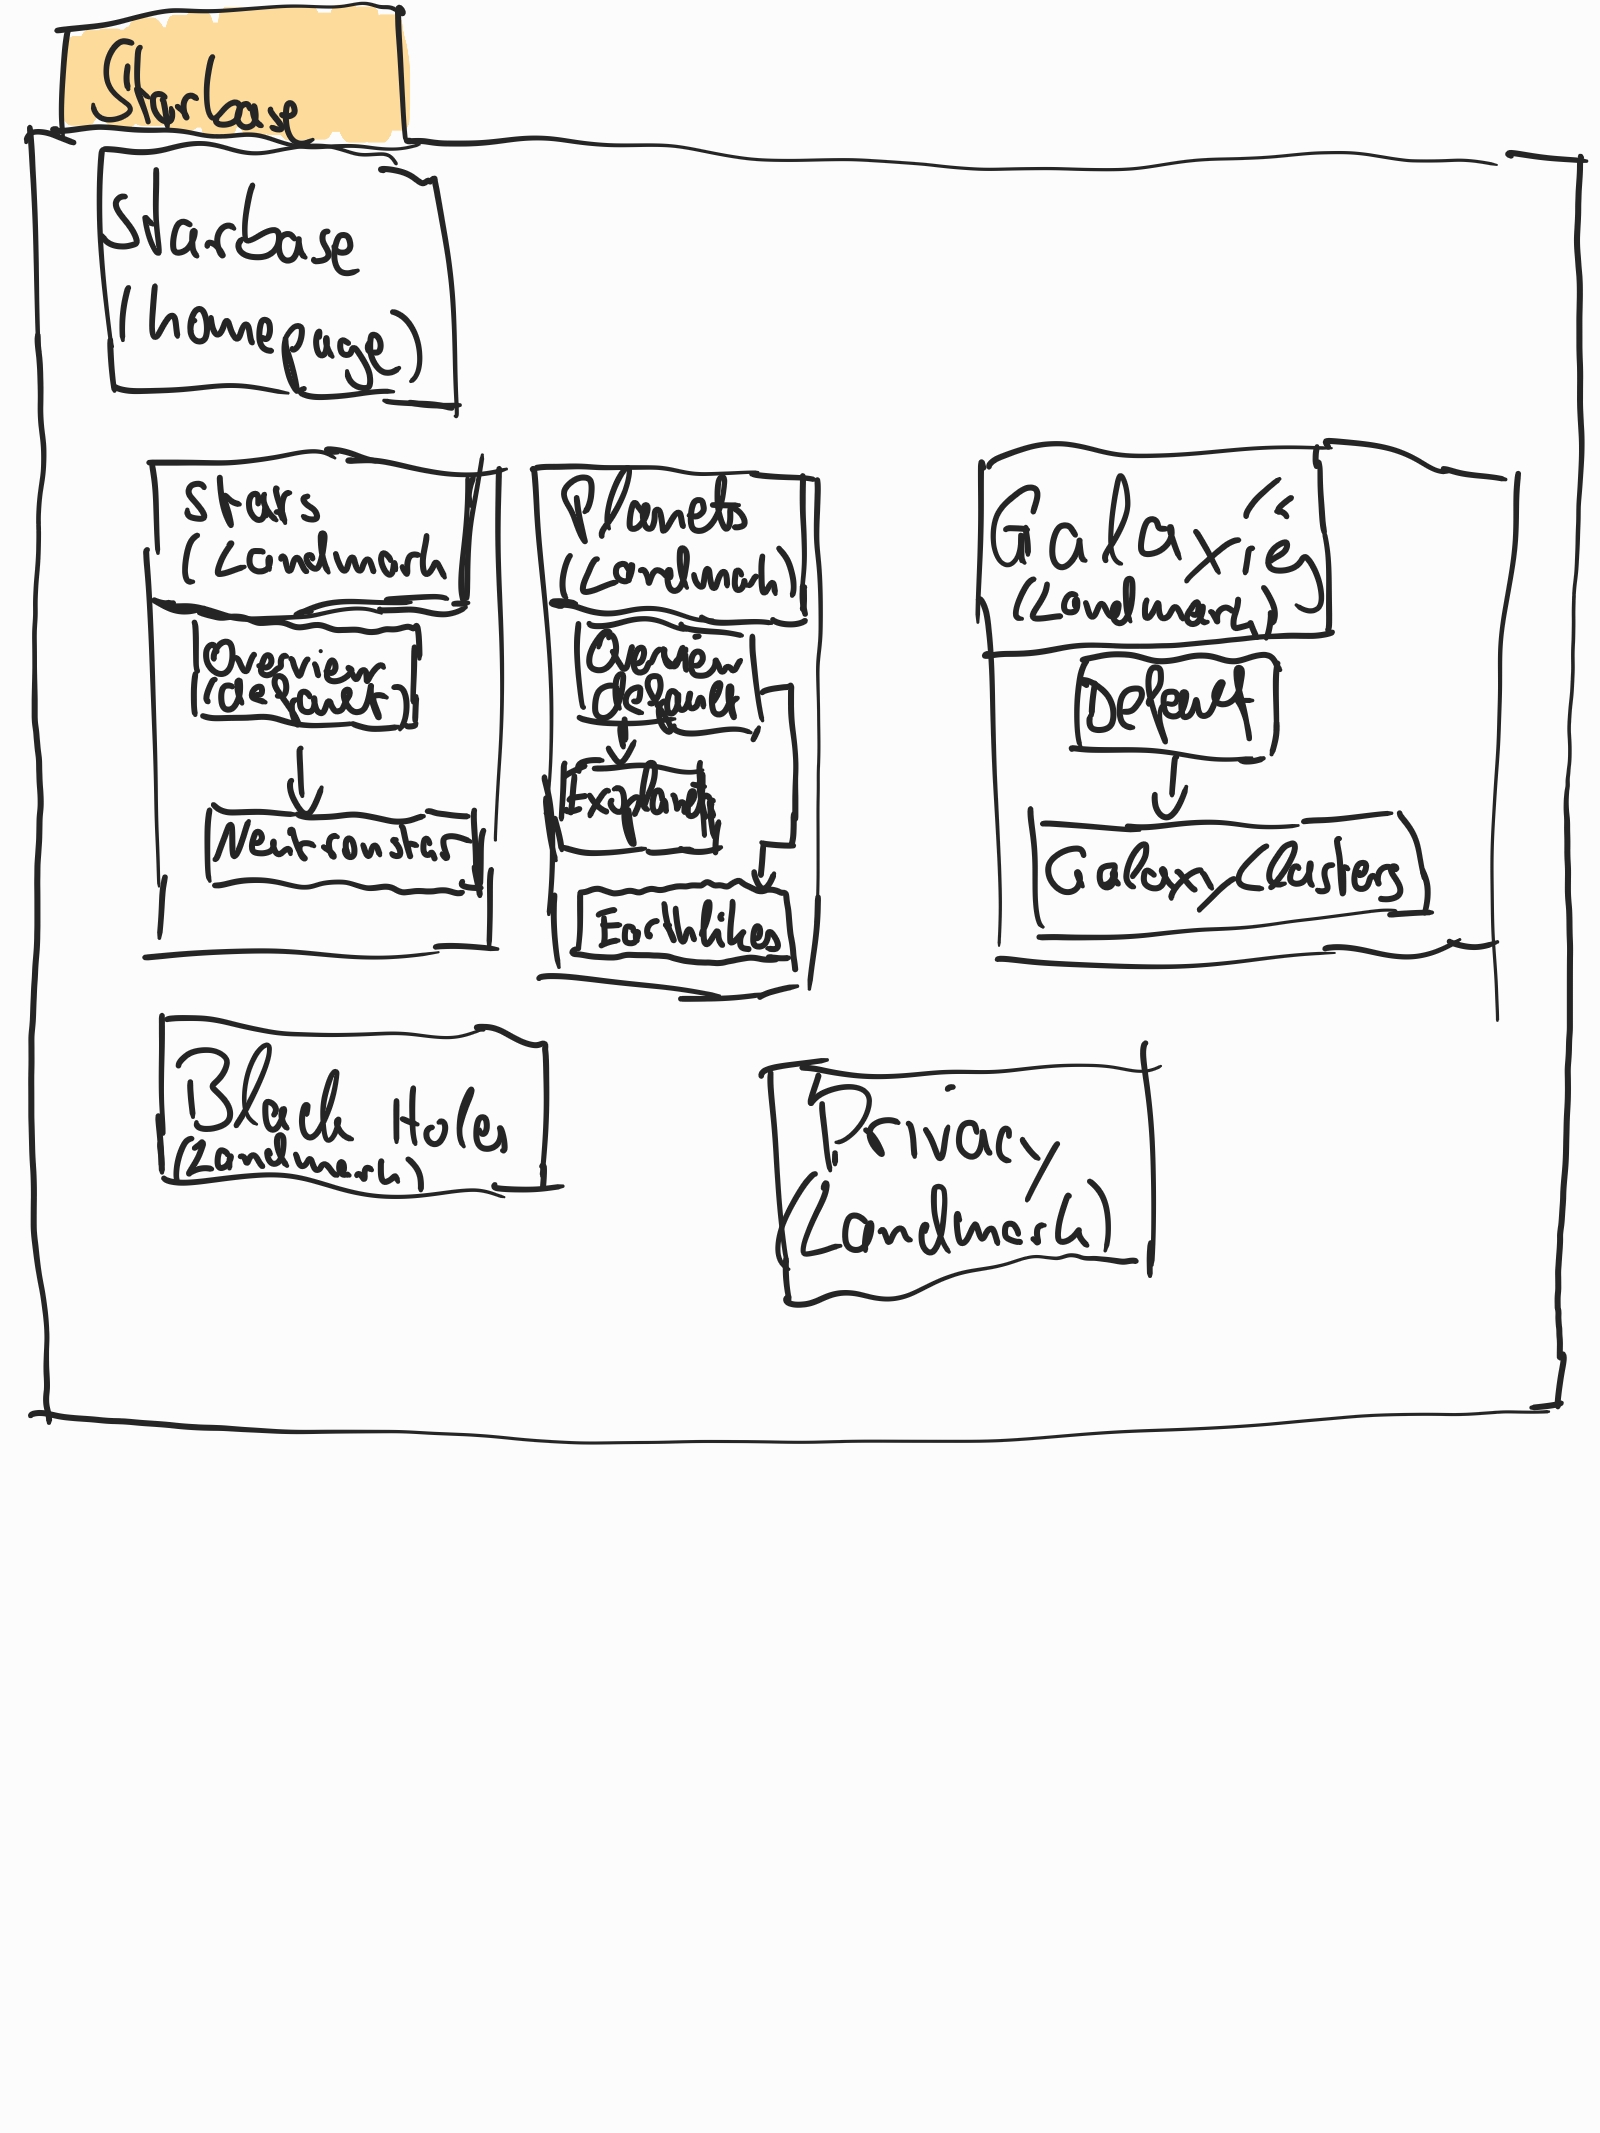 Starbase
Starbase
(homepage)
Stars
(Landmark
Overview
(default)
Neutronstar
Planets
(Landmark)
Overview
default
Exoplanets
Earthlikes
Galaxies
(Landmark)
Default
Galaxy Clusters
Black Holes
(Landmark)
Privacy
(Landmark)